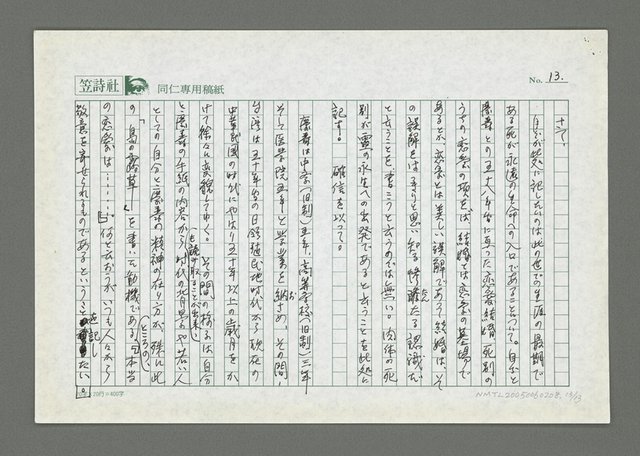 笠詩社
同仁専用稿紙
No. 13.
十六、
自分が茲に記したいのは此の世での生涯の最期で
ある死が永遠の生命への入口であることについて。自分と
との五十八年台に亘った恋愛、結婚、死別の
うちの恋愛の項をば、結婚では恋愛の墓場で
あるとか、恋愛とは美しい誤解であって結婚は、そ
の誤解をはっきりと思い知る惨憺たる認識だ
と云うことを書こうと云うのでは無い。肉体の死
別が霊の永生への出発であると云うことを此処に
記す。確信を以って。
は中学(旧制)五年、高等学校(旧制)三年
そして医学院五年と学業を納さめ、その間、
台湾は五十年台の日領植民地時代から現在の
中華民国の時代にやはり五十年以上の歳月をか
けて徐々に変貌してゆく。その間の様子は自分
との手紙の内容から時代の背景や若い人
も読み取ることが出来、
としての自分との精神の在り方が、殊に此
の「島の露草」を書いた動機である。日本当
ところの、
の恋愛は……何と云おうが、いつも人々から
敬意を寄せられるものであるということを記し
たい。
20×20=400字
NMTL20050060208 13/13